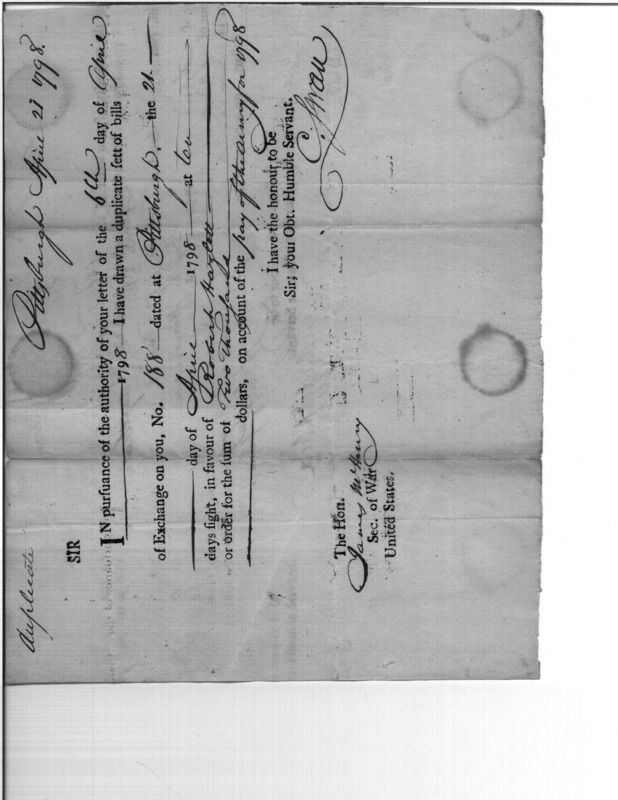 duplicate
Pittsburgh April 21 1798.
SIR
IN purſuance of the authority of your letter of the 6th day of April
1798 I have drawn a duplicate ſett of bills
of Exchange on you, No. 188 dated at Pittsburgh, the 21
day of April 1798 at ten
days ſight, in favour of Robert Hazlett
or order for the ſum of Two Thousands
dollars, on account of the pay of the Army for 1798
I have the honour to be
Sir, your Obt. Humble Servant.
C. Swan
The Hon.
James McHenry
Sec. of War
United States.